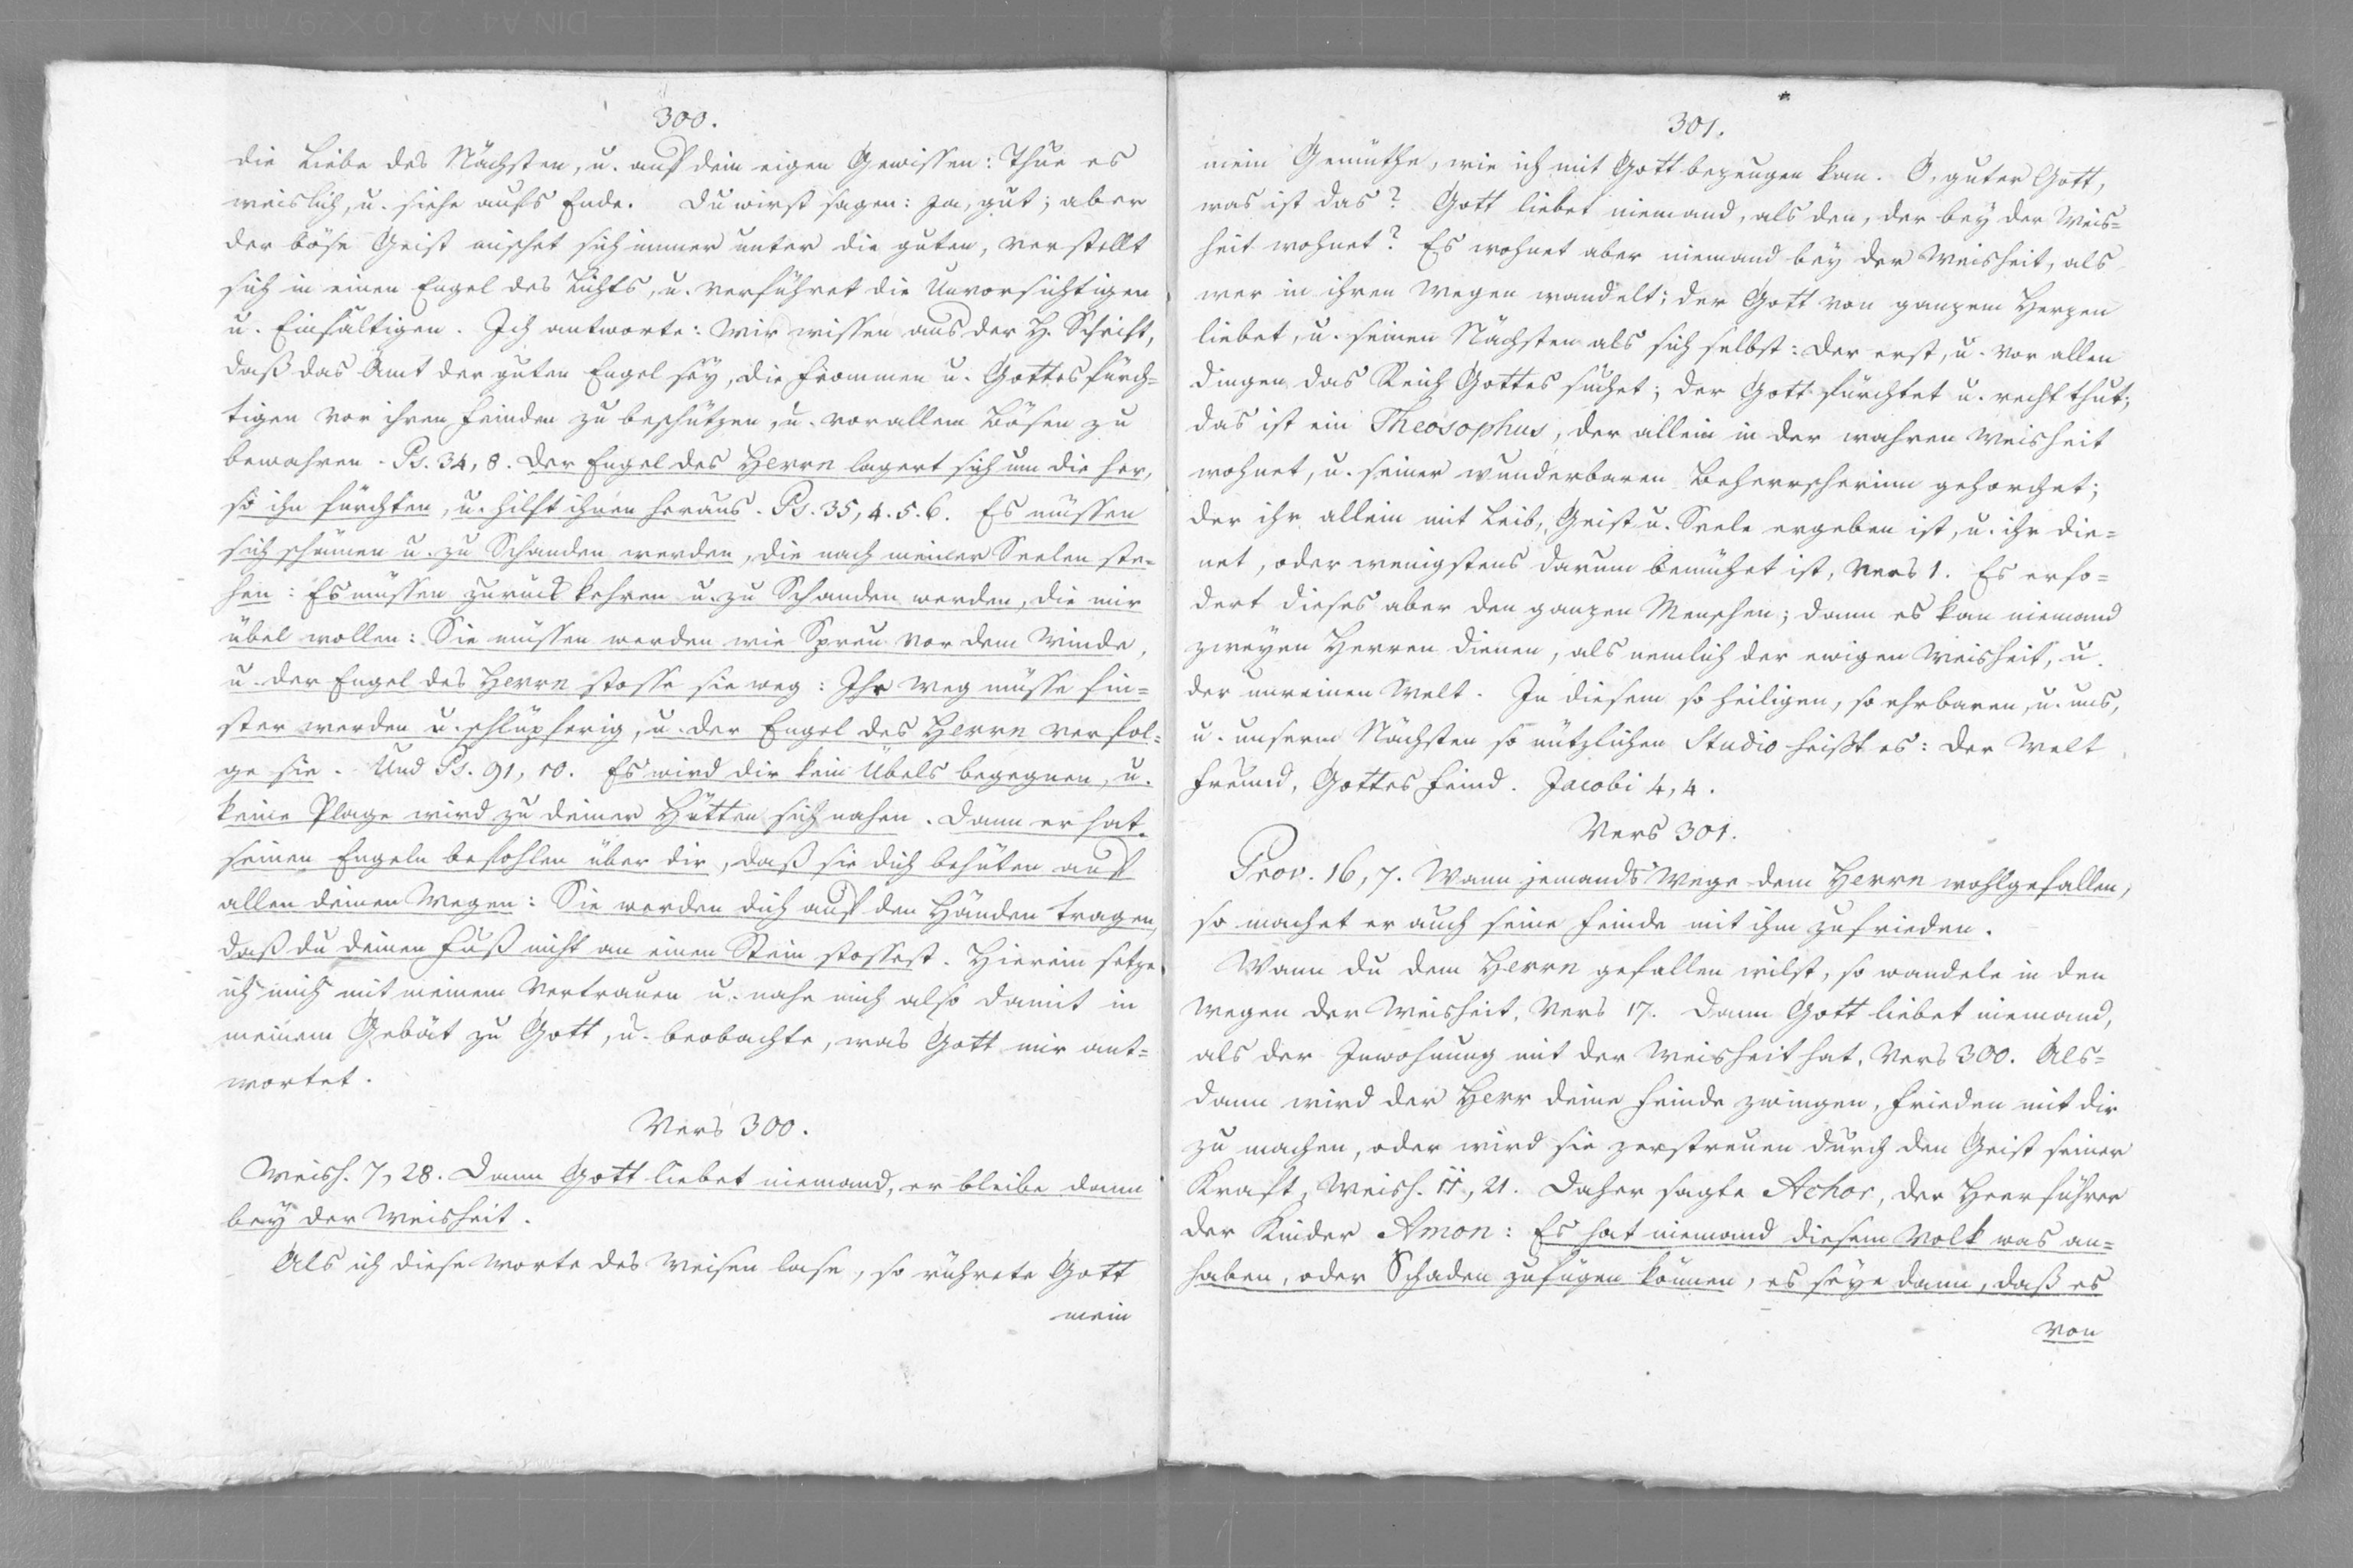 300.
die Liebe des Nächsten, u. auf dein eigen Gewissen: Thue es
weislich, u. siehe aufs Ende. Du wirst sagen: Ja, gut; aber
der böse Geist mischet sich immer unter die guten, verstellt
sich in einen Engel des Lichts, u. verführet die Unvorsichtigen
u. Einfältigen. Ich antworte: Wir wissen aus der H. Schrift,
daß das Amt der guten Engel sey, die Frommen u. Gottesfürch=
tigen vor ihren Feinden zu beschützen, u. vor allem Bösen zu
bewahren. Ps. 34, 8. Der Engel des Herrn lagert sich um die her,
so ihn fürchten, u. hilft ihnen heraus. Ps. 35, 4. 5. 6. Es müssen
sich schämen u. zu Schanden werden, die nach meiner Seelen ste=
hen: Es müssen zurück kehren u. zu Schanden werden, die mir
übel wollen: Sie müssen werden wie Spreu vor dem Winde,
u. der Engel des Herrn stosse sie weg: Ihr Weg müsse fin=
ster werden u. schlüpferig, u. der Engel des Herrn verfol=
ge sie. Und Ps. 91, 10. Es wird dir kein Übels begegnen, u.
keine Plage wird zu deiner Hütten sich nahen. Dann er hat
seinen Engeln befohlen über dir, daß sie dich behüten auf
allen deinen Wegen: Sie werden dich auf den Händen tragen,
daß du deinen Fuß nicht an einen Stein stossest. Hierein setze
ich mich mit meinem Vertrauen u. nahe mich also damit in
meinem Gebät zu Gott, u. beobachte, was Gott mir ant=
wortet.
Vers 300.
Weish. 7, 28. Dann Gott liebet niemand, er bleibe dann
bey der Weisheit.
Als ich diese Worte des Weisen lase, so rührete Gott
mein
301.
mein Gemüthe, wie ich mit Gott bezeugen kan. O, guter Gott,
was ist das? Gott liebet niemand, als den, der bey der Weis=
heit wohnet? Es wohnet aber niemand bey der Weisheit, als
wer in ihren Wegen wandelt; der Gott von ganzem Herzen
liebet, u. seinen Nächsten als sich selbst: Der erst, u. vor allen
Dingen das Reich Gottes suchet; der Gott fürchtet u. recht thut;
das ist ein Theosophus, der allein in der wahren Weisheit
wohnet, u. seiner wunderbaren Beherrscherinn gehorchet;
der ihr allein mit Leib, Geist u. Seele ergeben ist, u. ihr die=
net, oder wenigstens darum bemühet ist, Vers 1. Es erfo=
dert dieses aber den ganzen Menschen; dann es kan niemand
zweyen Herren dienen, als nemlich der ewigen Weisheit, u.
der unreinen Welt. In diesem so heiligen, so ehrbaren, u. uns,
u. unserm Nächsten so nützlichen Studio heißt es: Der Welt
Freund, Gottes Feind. Jacobi 4, 4.
Vers 301.
Prov. 16, 7. Wann jemands Wege dem Herrn wohlgefallen,
so machet er auch seine Feinde mit ihm zufrieden.
Wann du dem Herrn gefallen wilst, so wandele in den
Wegen der Weisheit, Vers 17. Dann Gott liebet niemand,
als der Inwohnung mit der Weisheit hat, Vers 300. Als=
dann wird der Herr deine Feinde zwingen, Frieden mit dir
zu machen, oder wird sie zerstreuen durch den Geist seiner
Kraft, Weish. 11, 21. Daher sagte Achor, der Heerführer
der Kinder Amon: Es hat niemand diesem Volk was an=
haben, oder Schaden zufügen können, es seye dann, daß es
von